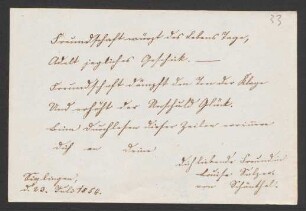 33
Freundschaft würzt des Lebens Tage,
Adelt jegliches Geschick. —
Freundschaft dämpft den Ton der Klage
Und erhöht der Unschuld Glück.
Beim Durchlesen dieser Zeilen erinnere
dich an Deine
dich liebende Freundin
Luise Sulzer
von
d. 23. Juli 1854.